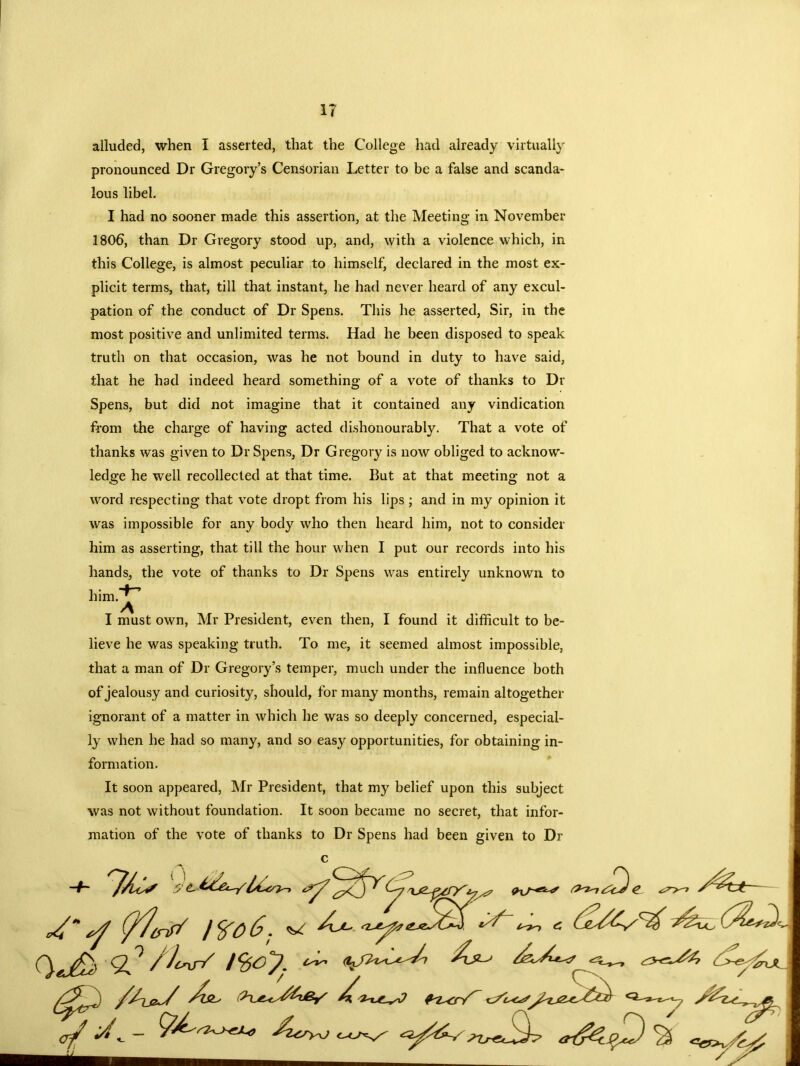 17
alluded, when I asserted, that the College had already virtually
pronounced Dr Gregory's Censorian Letter to be a false and scanda-
lous libel.
I had no sooner made this assertion, at the Meeting in November
1806, than Dr Gregory stood up, and, with a violence which, in
this College, is almost peculiar to himself, declared in the most ex-
plicit terms, that, till that instant, he had never heard of any excul-
pation of the conduct of Dr Spens. This he asserted, Sir, in the
most positive and unlimited terms. Had he been disposed to speak
truth on that occasion, was he not bound in duty to have said,
that he had indeed heard something of a vote of thanks to Dr
Spens, but did not imagine that it contained any vindication
from the charge of having acted dishonourably. That a vote of
thanks was given to Dr Spens, Dr Gregory is now obliged to acknow-
ledge he well recollected at that time. But at that meeting not a
word respecting that vote dropt from his lips; and in my opinion it
was impossible for any body who then heard him, not to consider
him as asserting, that till the hour when I put our records into his
hands, the vote of thanks to Dr Spens was entirely unknown to
him.+
I must own, Mr President, even then, I found it difficult to be-
lieve he was speaking truth. To me, it seemed almost impossible,
that a man of Dr Gregory's temper, much under the influence both
of jealousy and curiosity, should, for many months, remain altogether
ignorant of a matter in which he was so deeply concerned, especial-
ly when he had so many, and so easy opportunities, for obtaining in-
formation.
It soon appeared, Mr President, that my belief upon this subject
was not without foundation. It soon became no secret, that infor-
mation of the vote of thanks to Dr Spens had been given to Dr
C
+ This of Dr Gregory was made on the
of Novr 1806. he in a
Novr 1807. in his
that he neither nor
of it. -